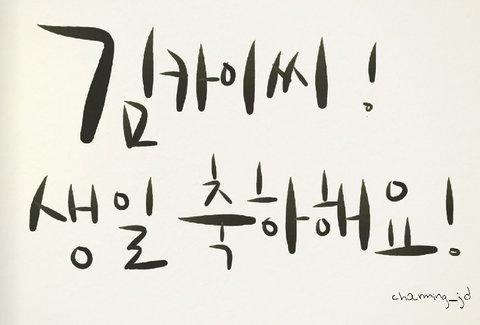 김카이씨!
생일 축하해요!
charming_jd